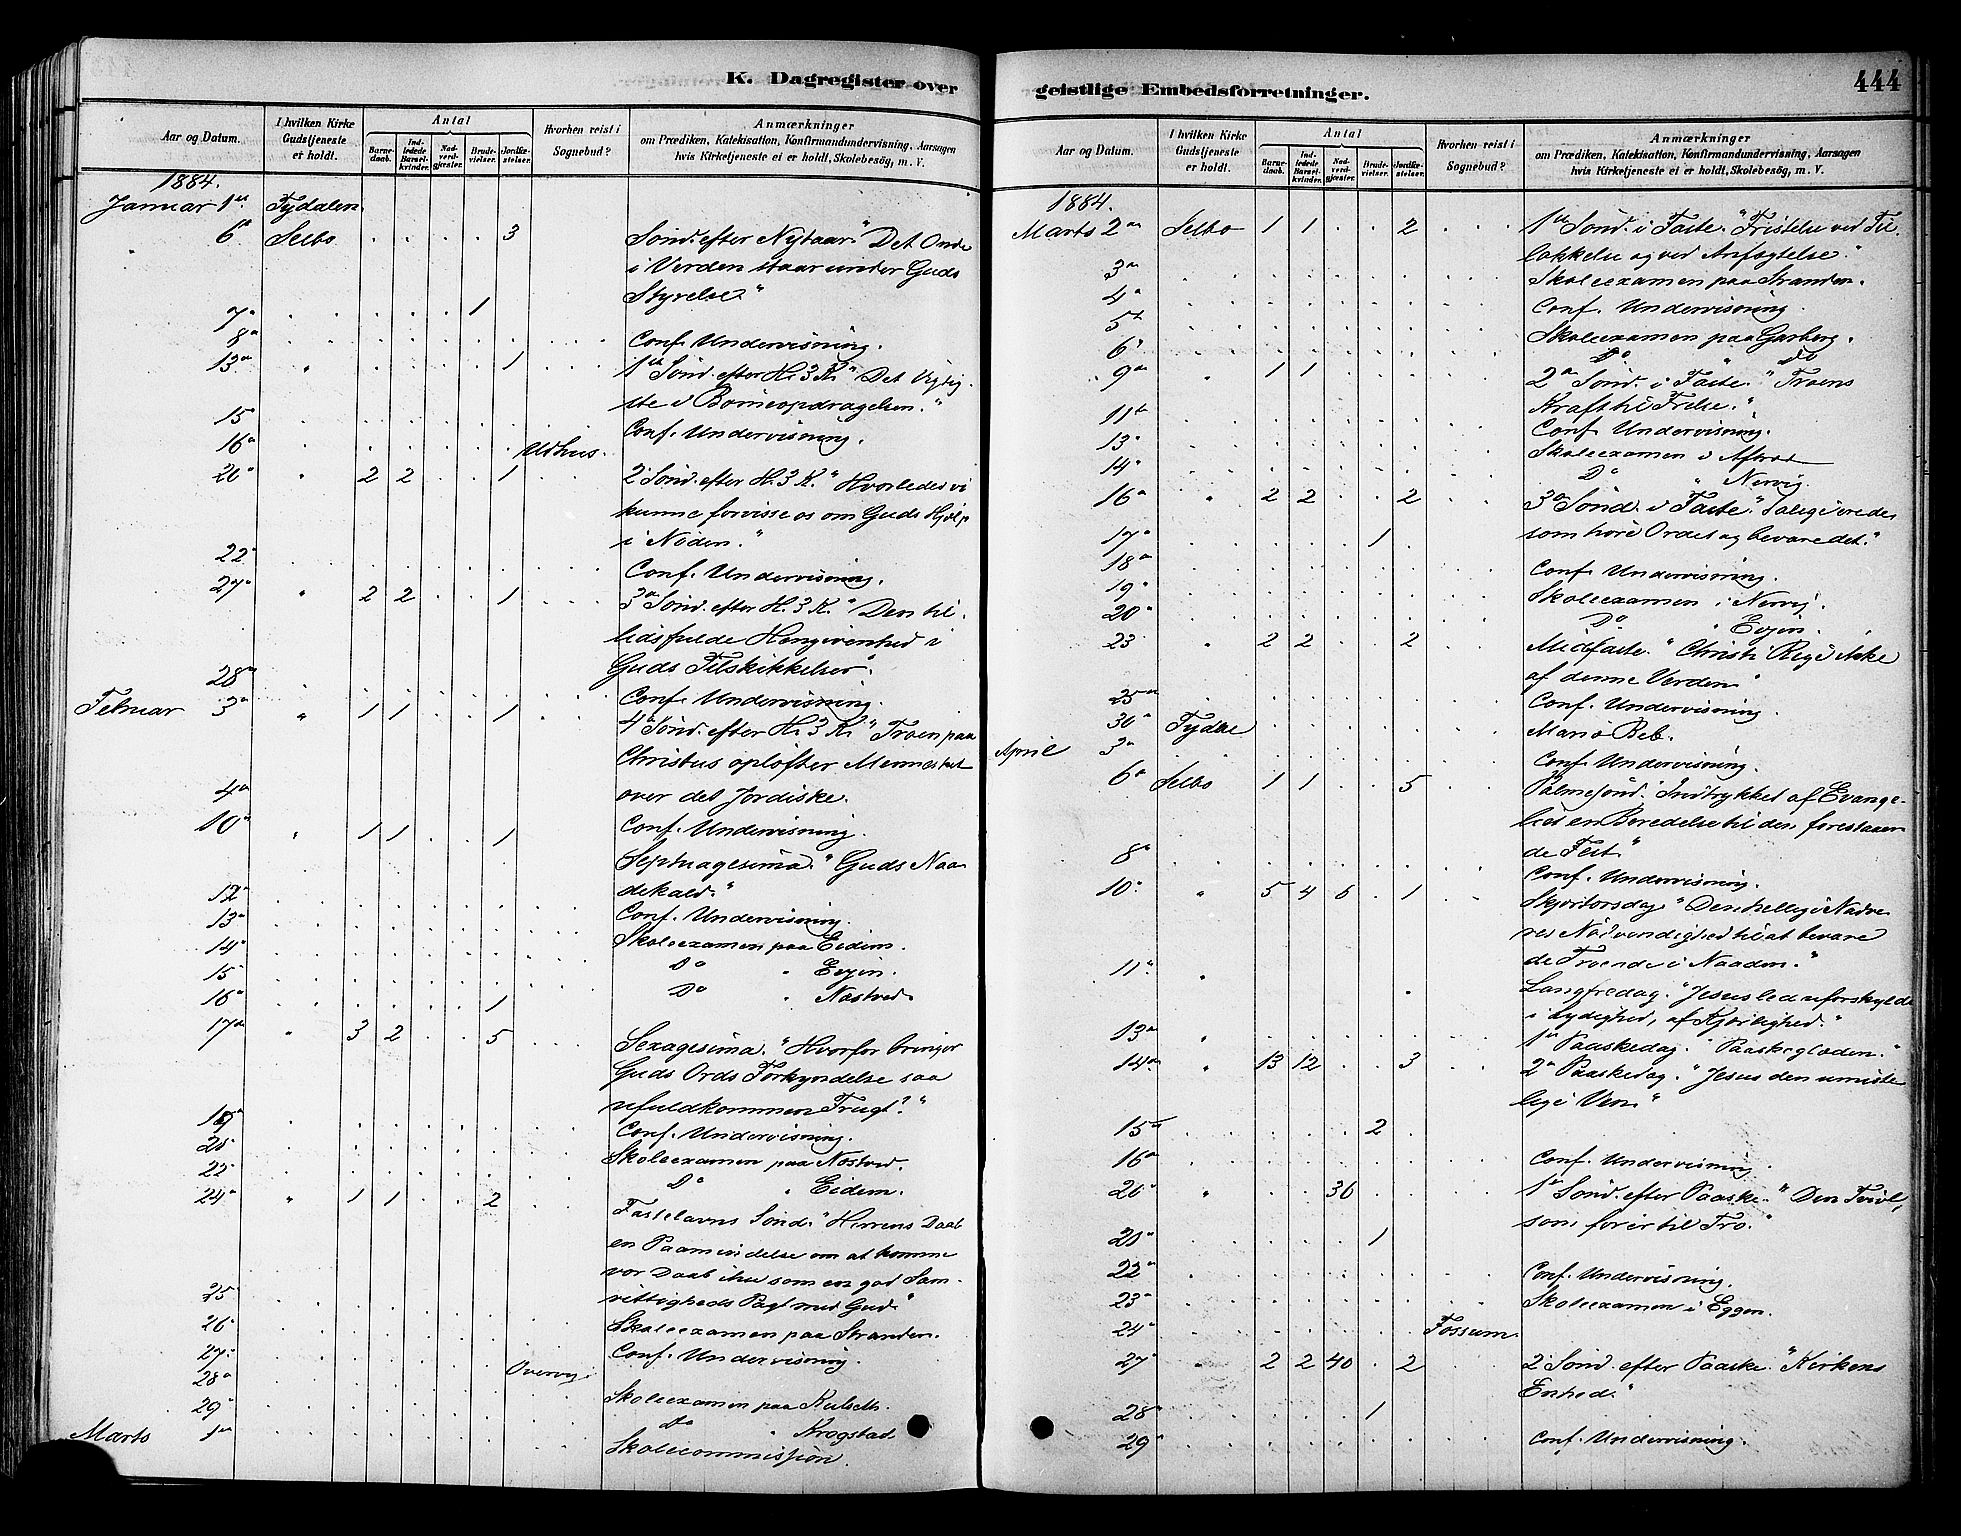 K. Dagregister over
Aar og Datum.
I hvilken Kirke Gudstjeneste er holdt.
Antal
Barnedaab.
Indledede Barselkvinder.
Nadverdgjæster.
Brudevielser.
Jordfæstelser.
Hvorhen reist i Sognebud?
Anmærkninger
om Prædiken, Katekisation, Konfirmandundervisning, Aarsagen
hvis Kirketjeneste ei er holdt, Skolebesög, m. V.
1884.
Januar 1ste Tydalen.
6te Selbo 3 Sönd. efter Nytaar. "Det Onde
i Verden staar under Guds
Styrelse"
7de 1
8de Conf. Undervisning.
13de " 1 1ste Sönd. efter H. 3 K. "Det Vigtig
ste i Börneopdragelsen."
15 Conf. Undervisning.
16 Udhus.
20 " 2 2 1 2 Sönd. efter H. 3 K. "Hvorledes vi
kunne forvisse os om Guds Hjælp
i Nöden."
22 Conf. Undervisning.
27 " 2 2 1 3die Sönd. efter H. 3 K. "Den til
lidsfulde Hengivenhed i
Guds Tilskikkelser".
28 Conf. Undervisning.
Februar 3 " 1 1 1 4de Sönd. efter H. 3 K. "Troen paa
Christus oplöfter Mennesket
over det Jordiske.
4 Conf. Undervisning.
10 " 1 1 1 Septuagesima. "Guds Naa
dekald."
12 Conf. Undervisning.
13 Skoleexamen paa Eidem.
14 Do " Evjen.
15 Do " Nöstved.
16 1
17 " 3 2 5 Sexagesima. "Hvorfor bringer
Guds Ords Forkyndelse saa
ufuldkommen Frugt?"
19 Conf. Undervisning.
Skoleexamen paa Nöstved.
22 Do " Eidem.
24 " 1 1 2 Fastelavns Sönd. "Herrens Daab
en Paamindelse om at komme
vor Daab ihu som en god Sam-
vittigheds Pagt med Gud"
25 Skoleexamen paa Stranden.
26 Conf. Undervisning.
27
28
29 Skoleexamen paa Kulseth.
Do " Krogstad
Marts 1 Skolecommission.
geistlige Embedsforretninger.
444
Aar og Datum.
I hvilken Kirke Gudstjeneste er holdt.
Antal
Barnedaab.
Indledede Barselkvinder.
Nadverdgjæster.
Brudevielser.
Jordfæstelser.
Hvorhen reist i Sognebud?
Anmærkninger
om Prædiken, Katekisation, Konfirmandundervisning, Aarsagen
hvis Kirketjeneste ei er holdt, Skolebesög, m. V.
1884.
Marts 2 Selbo 1 1 2 1ste Sönd. i Faste. "Fristelse ved Til
lokkelse og ved Anfægtelse."
3 Skoleexamen paa Stranden.
4 Conf. Undervisning
5 Skoleexamen paa Garberg.
6 Do " Do
9 " 1 1 2den Sönd. i Faste. "Troens
Kraft til Frelse."
11 Conf. Undervisning.
13 Skoleexamen i
14 Do " Nervig.
16 " 2 2 2 3die Sönd. i Faste. "Salige ere de
som höre Ordet og bevare det."
17 1
18 Conf. Undervisning.
19 Skoleexamen i Nervig.
20 Do " Evjen.
23 " 2 2 2 Midfaste. "Christi Rige ikke
af denne Verden"
25 Conf. Undervisning.
30 Tydal Mariæ Beb.
April 3 Conf. Undervisning.
6 Selbo 1 1 5 Palmesönd. "Indtrykket af Evange-
liet en Beredelse til den forestaaen
de Fest"
8 Conf. Undervisning.
10 " 5 4 6 1 Skjærtorsdag. "Den hellige Nadve
res Nödvendighed til at bevare
de Troende i Naaden."
11 " Langfredag. "Jesus led uforskyldt
i Lydighed, af Kjærlighed."
13 " 1ste Paaskedag. "Paaskeglæden."
14 " 13 12 3 2den Paaskedag. "Jesus den umiste
lige Ven"
15 2
16 Conf. Undervisning
20 " 36 1ste Sönd. efter Paaske. "Den Tvivl,
som förer til Tro."
1
22 Conf. Undervisning.
23 Skoleexamen i Eggen.
24 Fossum.
27 " 2 2 40 2 2 Sönd. efter Paaske. "Kirkens
Enhed."
28 1
29 Conf. Undervisning.